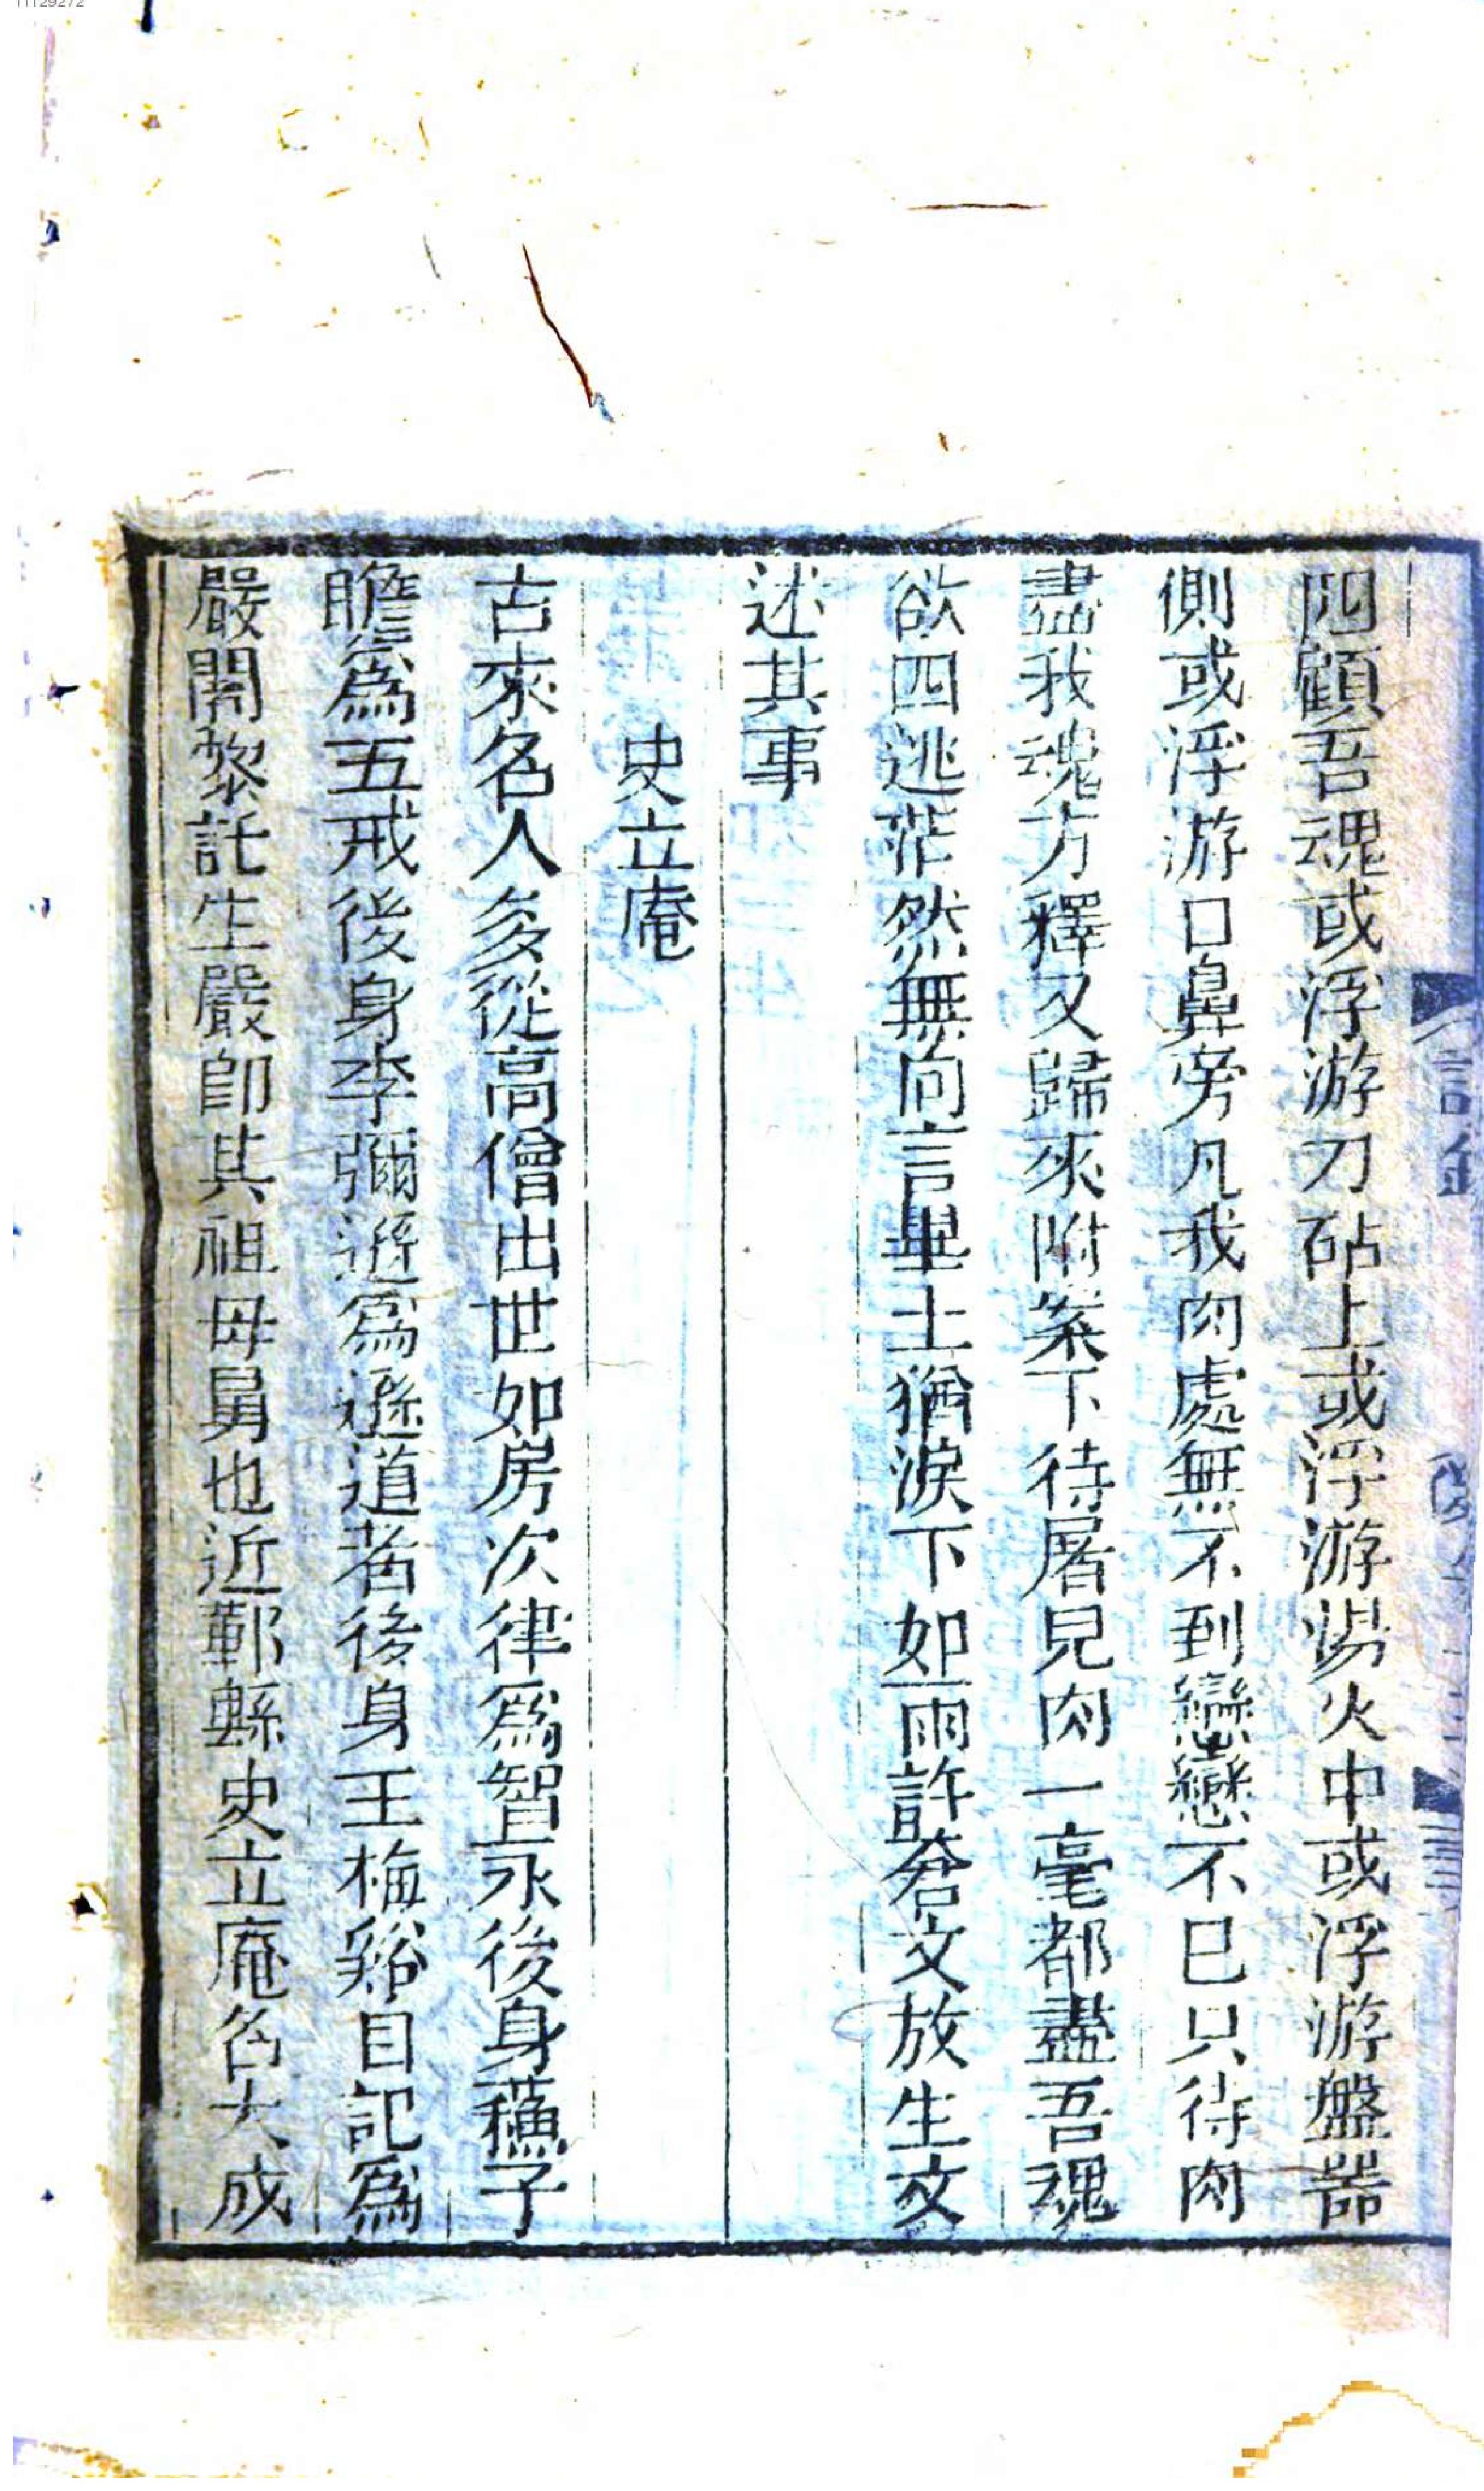 四顧吾魂或浮游刀砧上或浮游湯火中或浮游盤噐
側或浮游口鼻旁凡我肉處無不到戀戀不已只待肉
盡我魂方釋又歸來附案下待屠見肉一毫都盡吾魂
欲四逃茫然無向言畢士猶淚下如雨許耷文放生文
述其事
史立庵
古來名人多從高僧出世如房次律爲智永後身蘓子
瞻爲五戒後身李彌遜爲遜道者後身王梅谿自記爲
嚴闍黎託生嚴卽其祖母舅也近鄞縣史立庵名大成